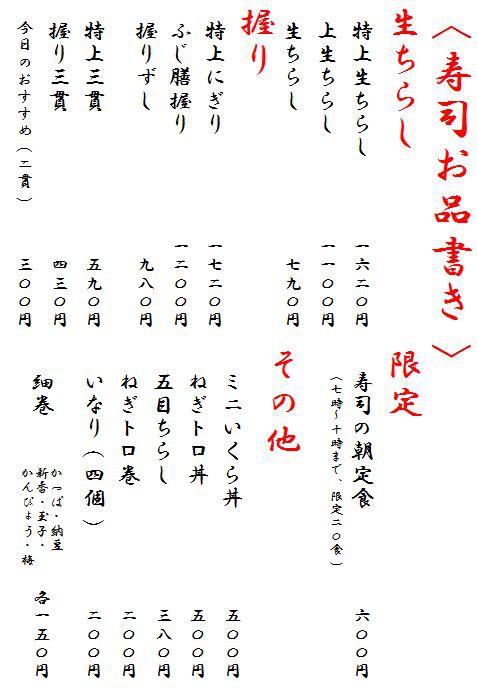 〈寿司お品書き〉
生ちらし
特上生ちらし 一六二〇円
上生ちらし 一一〇〇円
生ちらし 七九〇円
握り
特上にぎり 一七二〇円
ふじ膳握り 一二〇〇円
握りずし 九八〇円
特上三貫 五九〇円
握り三貫 四三〇円
今日のおすすめ(二貫) 三〇〇円
限定
寿司の朝定食 六〇〇円
(七時~十時まで、限定二〇食)
その他
ミニいくら丼 五〇〇円
ねぎトロ丼 五〇〇円
五目ちらし 三八〇円
ねぎトロ巻 二〇〇円
いなり(四個) 二〇〇円
細巻 かっぱ・納豆
新香・玉子・
かんぴょう・梅
各一五〇円